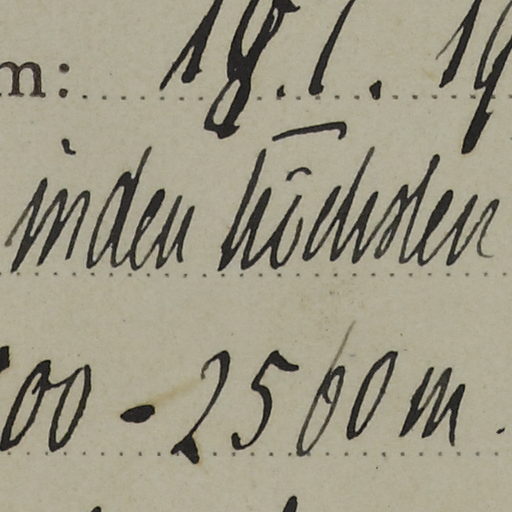 m: 18.7.19
in den höchsten
00 - 2500 m.